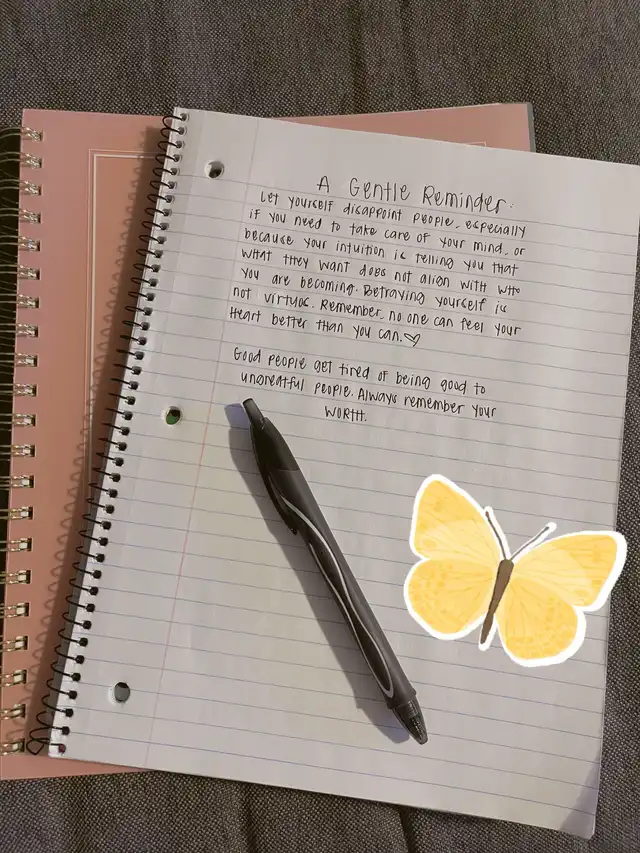 A Gentle Reminder.
Let yourself disappoint people. especially
if you need to take care of your mind. or
because your intuition is telling you that
what they want does not align with who
you are becoming. Betraying yourself is
not virtuos. Remember. no one can feel your
Heart better than you can.♡
Good people get tired of being good to
ungreatful people. Always remember your
WORTH.